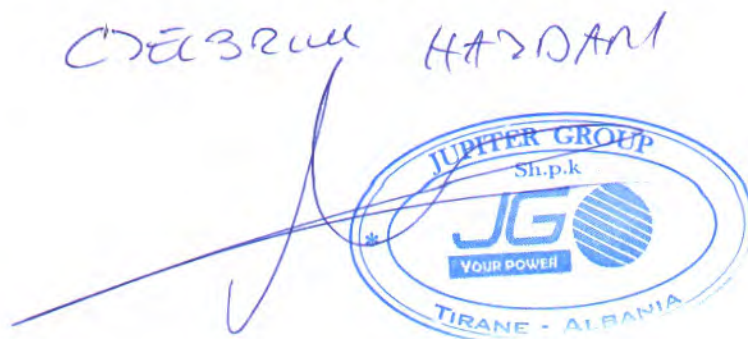 HAJDARI
JUPITER GROUP
Sh.p.k
JG
YOUR POWER
* TIRANE - ALBANIA